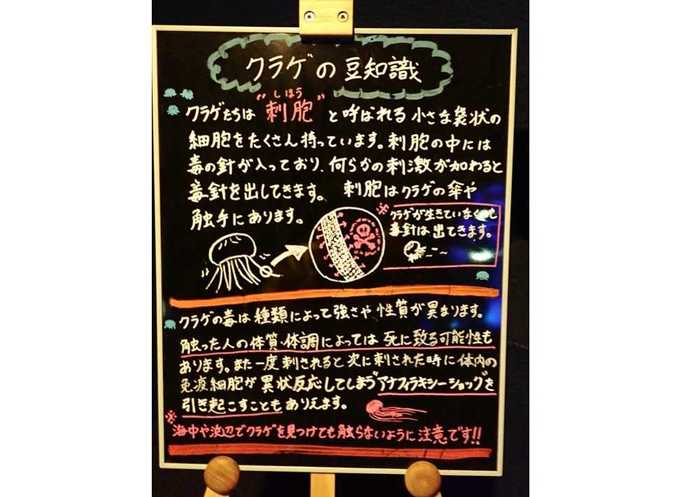 クラゲの豆知識
しほう
クラゲたちは"刺胞"と呼ばれる小さな袋状の
細胞をたくさん持っています。刺胞の中には
毒の針が入っており、何らかの刺激が加わると
毒針を出してきます。 刺胞はクラゲの傘や
触手にあります。
※クラゲが生きていなくても
毒針は出てきます。
クラゲの毒は種類によって強さや性質が異なります。
触った人の体質・体調によっては死に致る可能性も
あります。また一度刺されると次に刺された時に体内の
免疫細胞が異状反応してしまう"アナフィラキシーショック"を
引き起こすこともありえます。
※海中や浜辺でクラゲを見つけても触らないように注意です!!